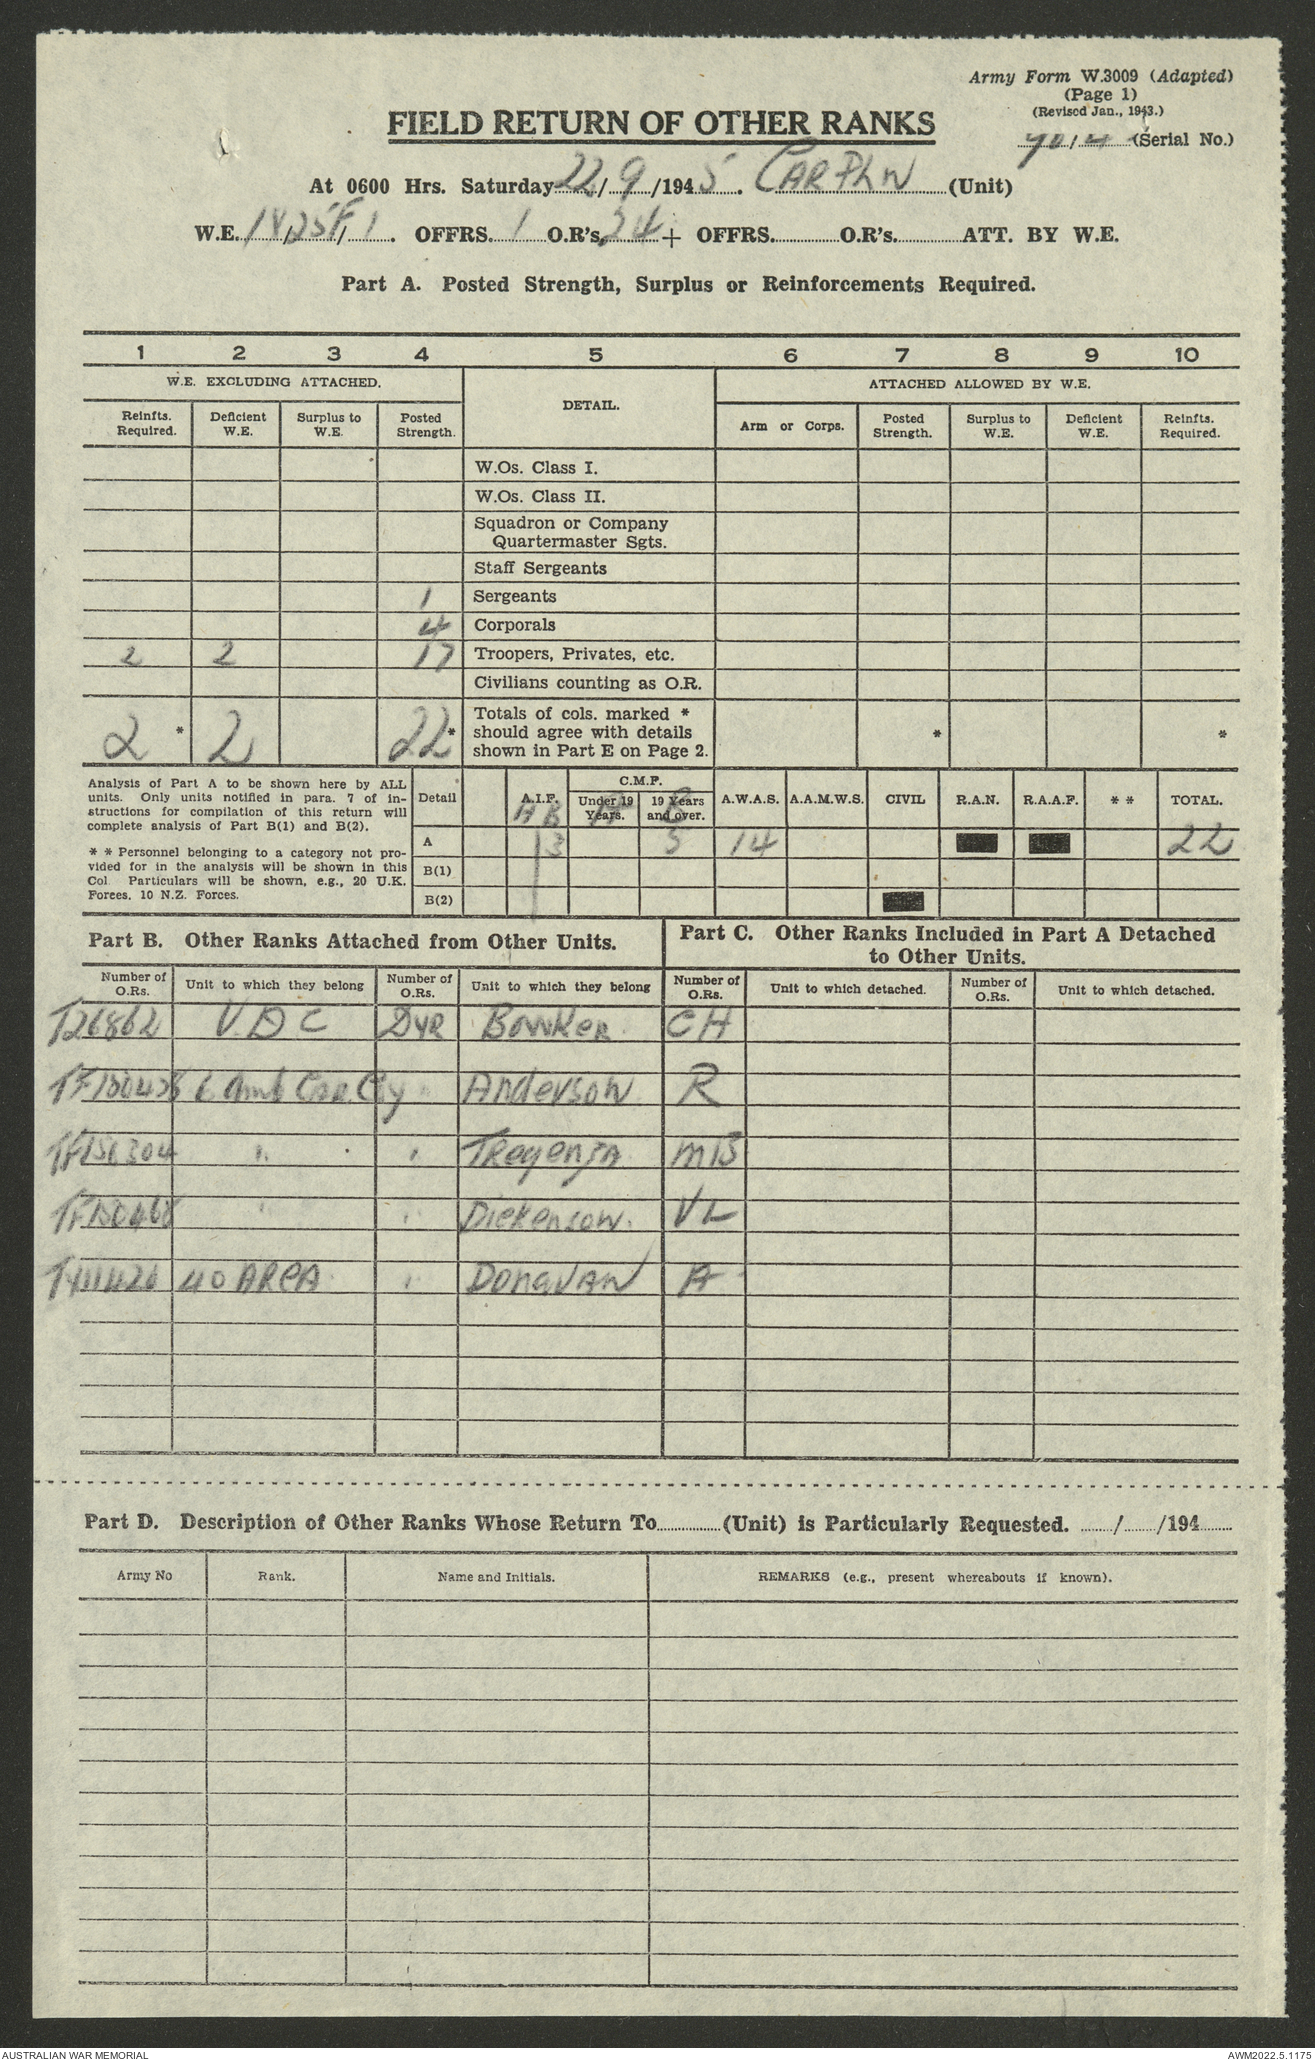 Army Form W.3009 (Adapted)
(Page 1)
(Revised Jan., 1943.)
FIELD RETURN OF OTHER RANKS
(Serial No.)
At 0600 Hrs. Saturday 22/9/1945. CAR PLN (Unit)
W.E. OFFRS. 1 O.R's. 24 + OFFRS. O.R's. ATT. BY W.E.
Part A. Posted Strength, Surplus or Reinforcements Required.
1 2 3 4 5 6 7 8 9 10
W.E. EXCLUDING ATTACHED. DETAIL. ATTACHED ALLOWED BY W.E.
Reinfts. Required. Deficient W.E. Surplus to W.E. Posted Strength. Arm or Corps. Posted Strength. Surplus to W.E. Deficient W.E. Reinfts. Required.
W.Os. Class I.
W.Os. Class II.
Squadron or Company
Quartermaster Sgts.
Staff Sergeants
1 Sergeants
4 Corporals
2 2 17 Troopers, Privates, etc.
Civilians counting as O.R.
2 * 2 22 * Totals of cols. marked * should agree with details shown in Part E on Page 2. * *
Analysis of Part A to be shown here by ALL
units. Only units notified in para. 7 of in-
structions for compilation of this return will
complete analysis of Part B(1) and B(2).
* * Personnel belonging to a category not pro-
vided for in the analysis will be shown in this
Col Particulars will be shown, e.g., 20 U.K.
Forces, 10 N.Z. Forces.
Detail A.I.F. C.M.F. Under 19 Years. 19 Years and over. A.W.A.S. A.A.M.W.S. CIVIL R.A.N. R.A.A.F. * * TOTAL.
A B A B
A 3 5 14 22
B(1)
B(2)
Part B. Other Ranks Attached from Other Units.
Part C. Other Ranks Included in Part A Detached
to Other Units.
Number of O.Rs. Unit to which they belong Number of O.Rs. Unit to which they belong Number of O.Rs. Unit to which detached. Number of O.Rs. Unit to which detached.
T26862 VDC DVR Bowker CH
6 Amb Car Coy " Anderson R
" " Tregenza MB
" " Dickenson VL
40 AREA " Donavan A
Part D. Description of Other Ranks Whose Return To (Unit) is Particularly Requested. / /194
Army No Rank. Name and Initials. REMARKS (e.g., present whereabouts if known).
AUSTRALIAN WAR MEMORIAL AWM2022.5.1175